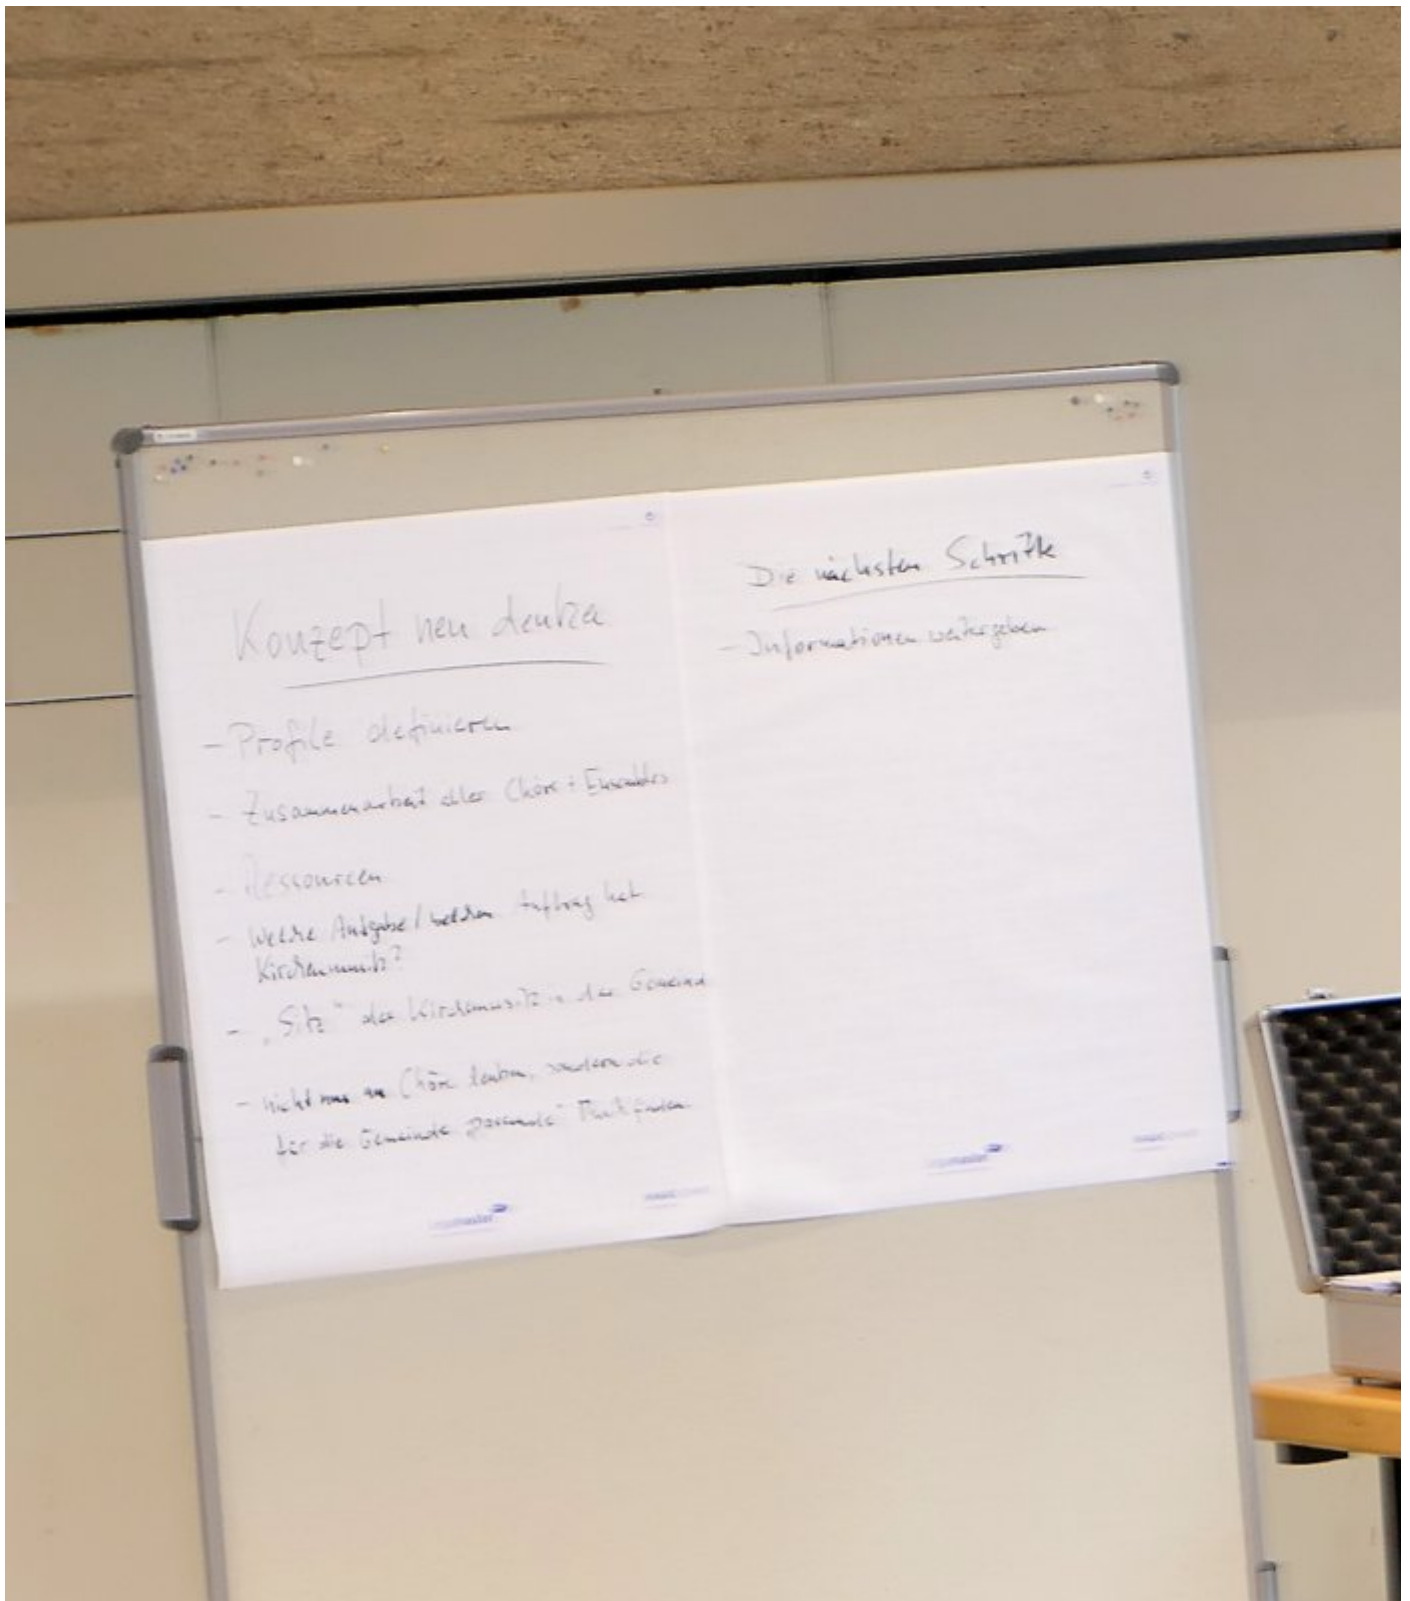 Konzept neu denken
- Profile definieren
- Zusammenarbeit aller Chöre + Ensembles
- Ressourcen
- Welche Aufgabe / welchen Auftrag hat
Kirchenmusik?
- "Sitz" der Kirchenmusik in der Gemeinde
- nicht nur an Chöre denken, sondern die
für die Gemeinde "passende" Musik finden
Die nächsten Schritte
- Informationen weitergeben